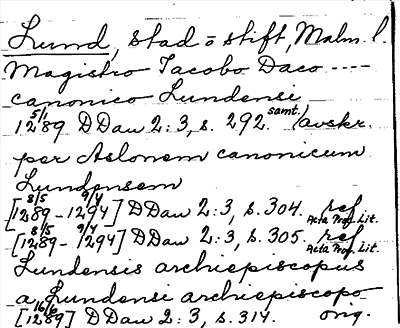 Lund, stad o stift, Malm. l.
Magistro Jacobo Daco ----
canonico Lundensi
5/1 1289 DDan 2:3, s. 292. samt. (avskr.
per Aslonem canonicum
Lundensem
[8/5 1289 - 9/4 1294] DDan 2:3, s. 304. ref Acta Proc. Lit.
[8/5 1289 - 9/4 1294] DDan 2:3, s. 305. ref Acta Proc. Lit.
Lundensis archiepiscopus
a Lundensi archiepiscopo
[16/6 1289] DDan 2:3, s. 314. orig.